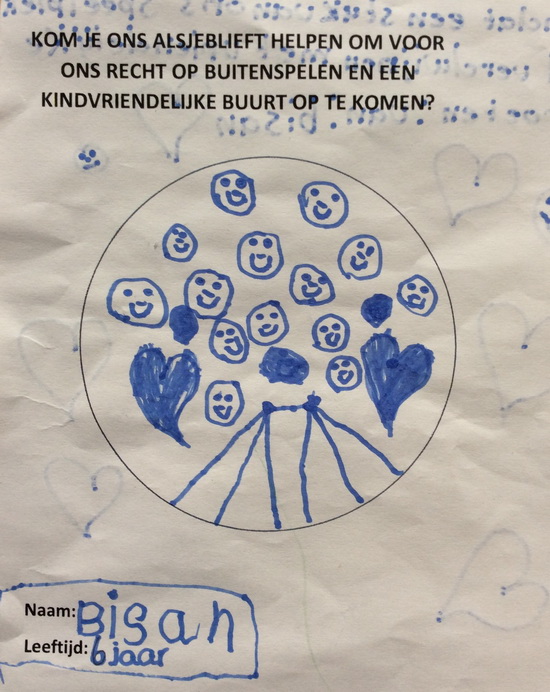 KOM JE ONS ALSJEBLIEFT HELPEN OM VOOR
ONS RECHT OP BUITENSPELEN EN EEN
KINDVRIENDELIJKE BUURT OP TE KOMEN?
Naam: Bisan
Leeftijd: 6 jaar